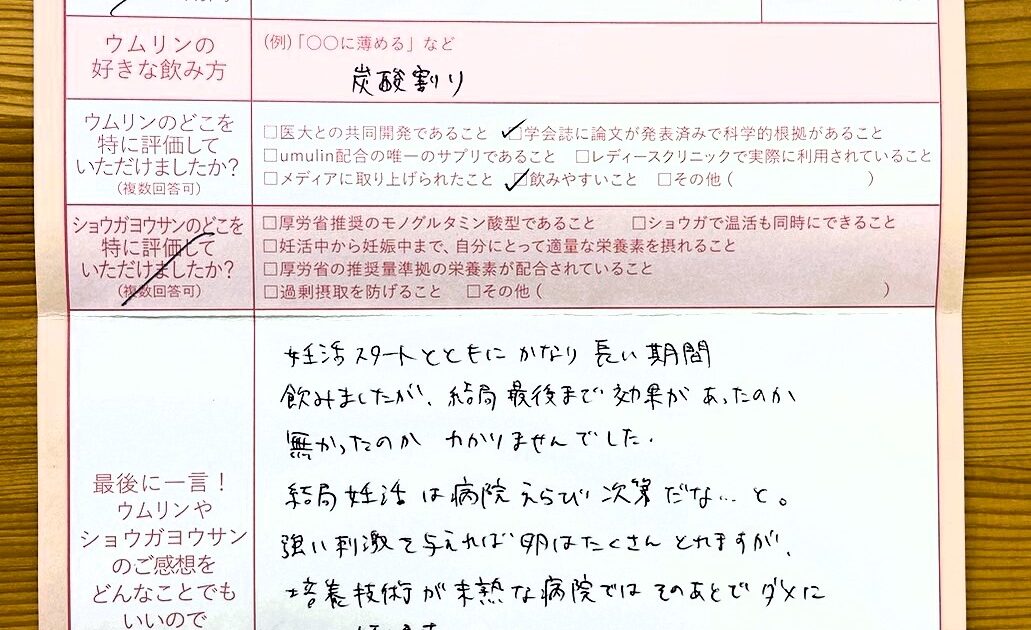 ウムリンの
好きな飲み方
(例)「〇〇に薄める」など
炭酸割り
ウムリンのどこを
特に評価して
いただけましたか?
(複数回答可)
□医大との共同開発であること □学会誌に論文が発表済みで科学的根拠があること
□umulin配合の唯一のサプリであること □レディースクリニックで実際に利用されていること
□メディアに取り上げられたこと □飲みやすいこと □その他( )
ショウガヨウサンのどこを
特に評価して
いただけましたか?
(複数回答可)
□厚労省推奨のモノグルタミン酸型であること □ショウガで温活も同時にできること
□妊活中から妊娠中まで、自分にとって適量な栄養素を摂れること
□厚労省の推奨量準拠の栄養素が配合されていること
□過剰摂取を防げること □その他( )
最後に一言!
ウムリンや
ショウガヨウサン
のご感想を
どんなことでも
いいので
妊活スタートとともにかなり長い期間
飲みましたが、結局最後まで効果があったのか
無かったのかわかりませんでした。
結局妊活は病院えらび次第だな…と。
強い刺激を与えれば卵はたくさんとれますが、
培養技術が未熟な病院ではそのあとでダメに